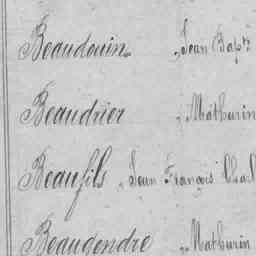 Beaudouin „ Jean Bapt
Beaudrier „ Mathurin
Beaufils „ Jean François Charl
Beaudendre „ Mathurin